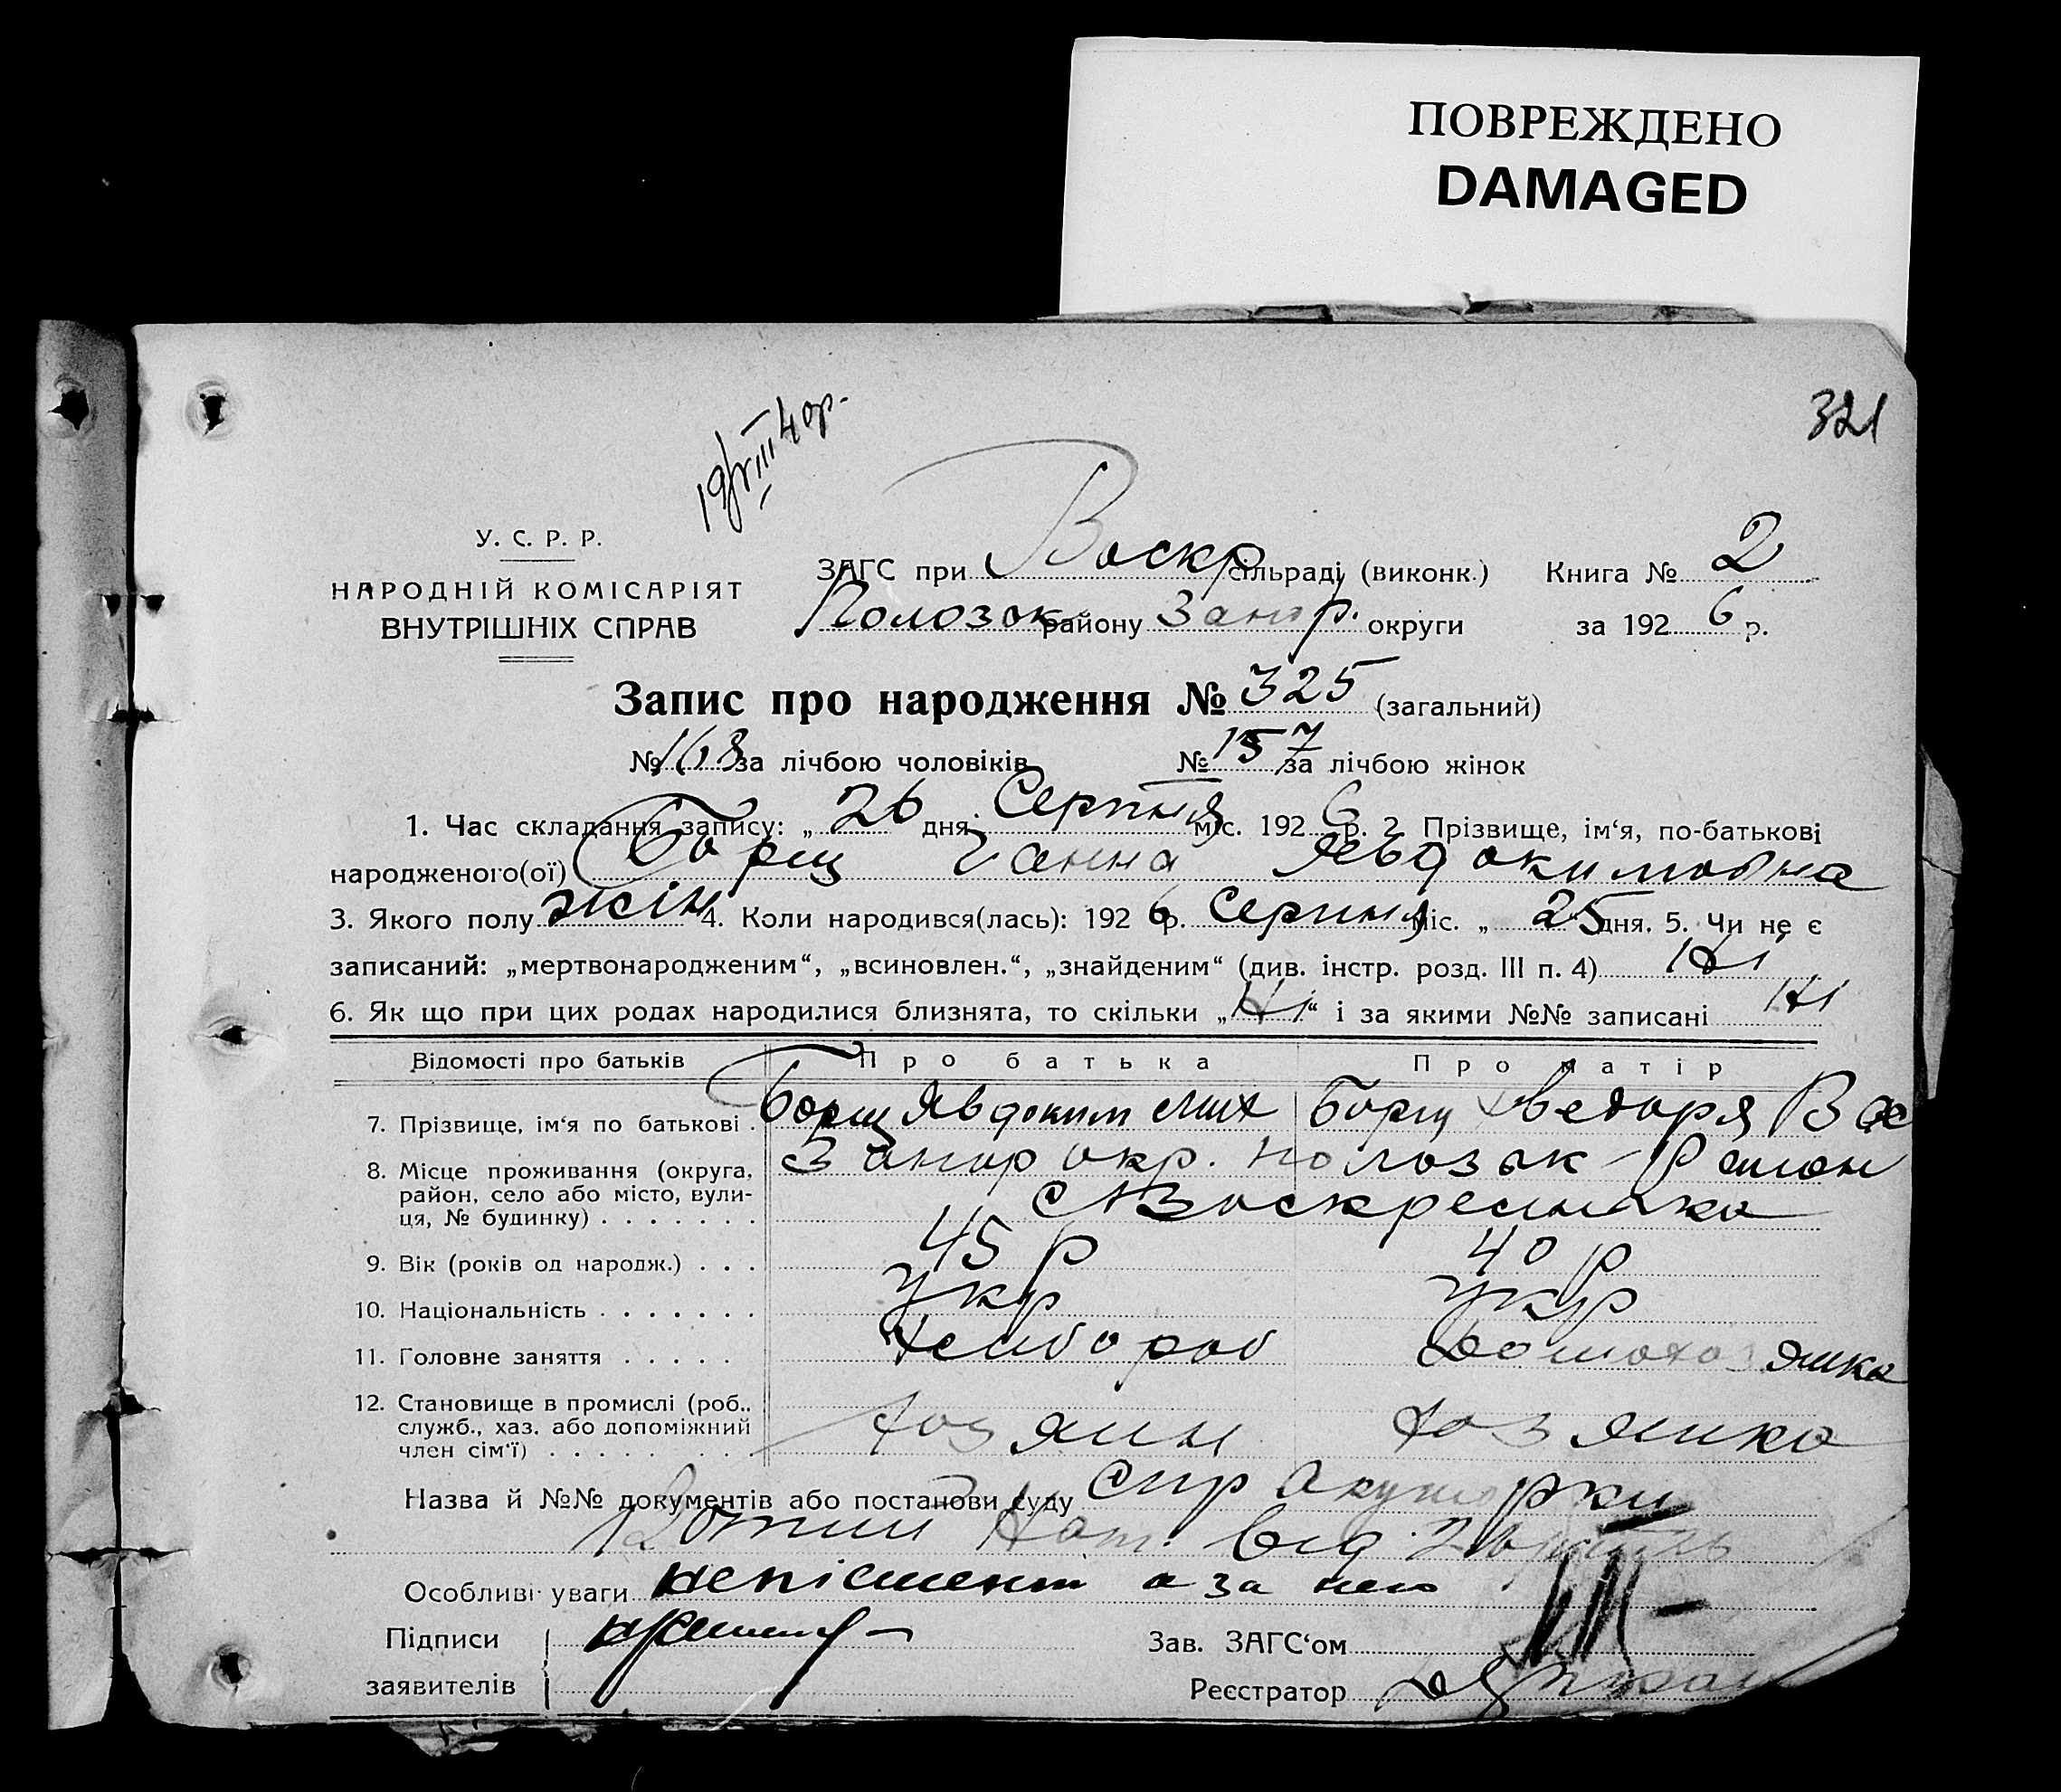 ПОВРЕЖДЕНО
DAMAGED
321
19/VIII 40р.
У. С. Р. Р.
НАРОДНІЙ КОМІСАРІЯТ
ВНУТРІШНІХ СПРАВ
ЗАГС при Воскр сільраді (виконк.) Книга № 2
Полозьк району Запор. округи за 1926 р.
Запис про народження № 325 (загальний)
№ 168 за лічбою чоловіків № 157 за лічбою жінок
1. Час складання запису: „ 26 дня Серпня міс. 1926 р. 2 Прізвище, ім‘я, по-батькові
народженого(ої) Борщ Ганна Явдокимовна
3. Якого полу жін 4. Коли народився(лась): 1926 р. Серпня міс. „ 25 дня. 5. Чи не є
записаний: „мертвонародженим“, „всиновлен.“, „знайденим“ (див. інстр. розд. III п. 4) Ні
6. Як що при цих родах народилися близнята, то скільки „ Ні “ і за якими №№ записані Ні
Відомості про батьків Про батька Про матір
7. Прізвище, ім‘я по батькові . Борщ Явдоким Мих Борщ Хведоря Вас
8. Місце проживання (округа, Запор окр. Полозьк-Район
район, село або місто, вули- с Воскресынка
ця, № будинку) . . . . . . .
9. Вік (років од народж.) . . . 45 р 40 р
10. Національність . . . . . . . Укр Укр
11. Головне заняття . . . . . Хлибороб Домохозяйка
12. Становище в промислі (роб.,
служб., хаз. або допоміжний Хозяин Хозяйка
член сім‘ї) . . . . . . . . .
Назва й №№ документів або постанови суду Спр Акушорки
від
Особливі уваги неписмен а за него
Підписи Зав. ЗАГС‘ом
заявителів Реєстратор